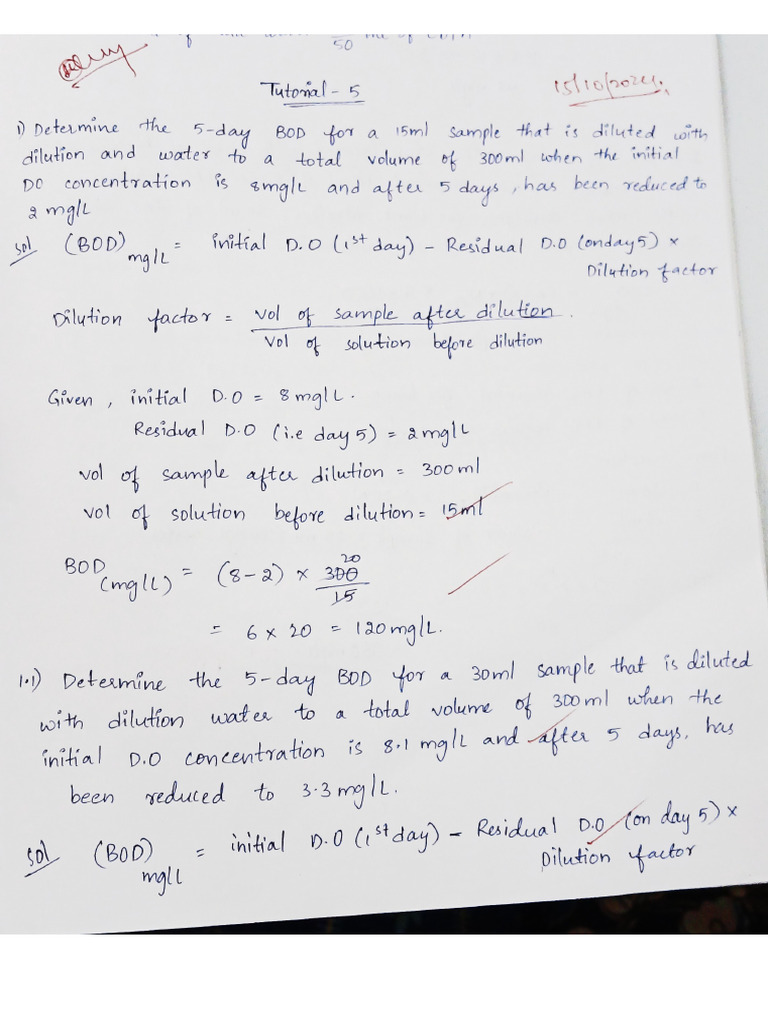 50 ml of
Tutorial - 5
15/10/2024.
1) Determine the 5-day BOD for a 15ml sample that is diluted with
dilution and water to a total volume of 300ml when the initial
DO concentration is 8mg/L and after 5 days, has been reduced to
2 mg/L
sol (BOD) mg/L = initial D.O (1st day) - Residual D.O (on day 5) ×
Dilution factor
Dilution factor = vol of sample after dilution.
vol of solution before dilution
Given, initial D.O = 8 mg/L.
Residual D.O (i.e day 5) = 2 mg/L
vol of sample after dilution = 300 ml
vol of solution before dilution = 15 ml
20
BOD (mg/L) = (8-2) × 300
15
= 6 × 20 = 120 mg/L.
1.1) Determine the 5-day BOD for a 30ml sample that is diluted
with dilution water to a total volume of 300ml when the
initial D.O concentration is 8.1 mg/L and after 5 days, has
been reduced to 3.3 mg/L.
sol (BOD) mg/L = initial D.O (1st day) - Residual D.O (on day 5) ×
Dilution factor